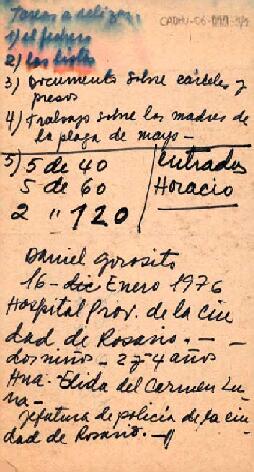 Tareas a relizar.
1) el fichero
2) las listas
3) Documento sobre cárceles y
presos
4) Trabajo sobre las madres de
la plaza de mayo -
5) 5 de 40
5 de 60
2 " 120
entradas
Horacio
Daniel Gorosito
16 - dic Enero 1976
Hospital Prov. de la ciu
dad de Rosario. -
dos niños - 2 y 4 años
Hna. Elida del Carmen Lu
na -
jefatura de policía de la ciu
dad de Rosario. -